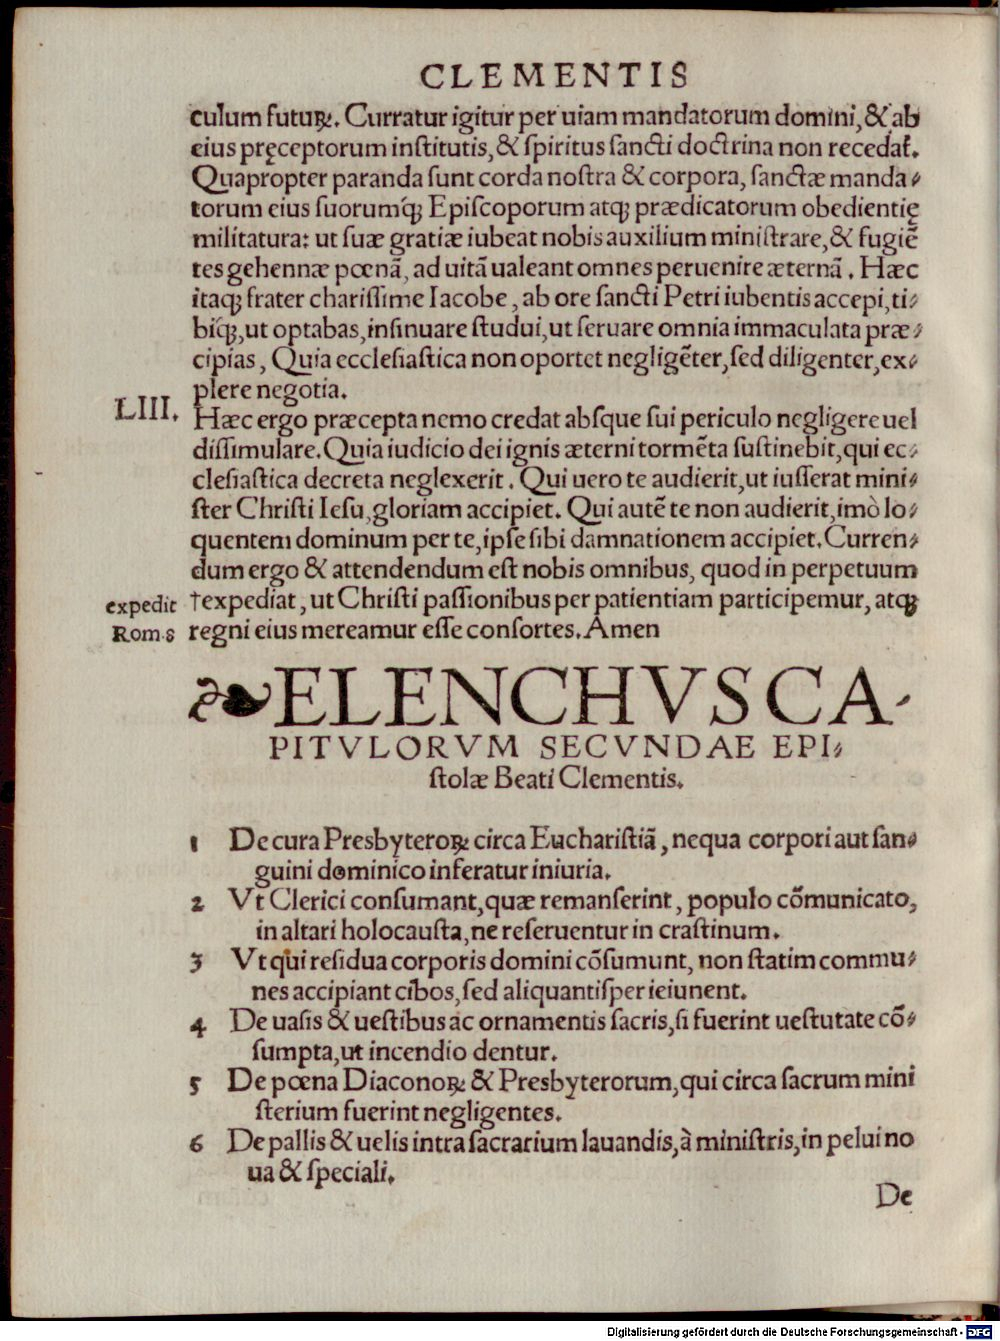 CLEMENTIS
culum futuꝝ. Curratur igitur per uiam mandatorum domini, & ab
eius pręceptorum inſtitutis, & ſpiritus ſancti doctrina non recedat.
Quapropter paranda ſunt corda noſtra & corpora, ſanctæ manda⸗
torum eius ſuorumq́ꝫ Epiſcoporum atqꝫ prædicatorum obedientię
militatura: ut ſuæ gratiæ iubeat nobis auxilium miniſtrare, & fugiẽ
tes gehennæ pœnã, ad uitã ualeant omnes peruenire æternã. Hæc
itaqꝫ frater chariſſime Iacobe, ab ore ſancti Petri iubentis accepi, ti⸗
biq́ꝫ, ut optabas, inſinuare ſtudui, ut ſeruare omnia immaculata præ⸗
cipias, Quia eccleſiaſtica non oportet negligẽter, ſed diligenter, ex⸗
plere negotia.
LIII. Hæc ergo præcepta nemo credat abſque ſui periculo negligere uel
diſſimulare. Quia iudicio dei ignis æterni tormẽta ſuſtinebit, qui ec⸗
cleſiaſtica decreta neglexerit. Qui uero te audierit, ut iuſſerat mini⸗
ſter Chriſti Ieſu, gloriam accipiet. Qui autẽ te non audierit, imò lo⸗
quentem dominum per te, ipſe ſibi damnationem accipiet. Curren⸗
dum ergo & attendendum eſt nobis omnibus, quod in perpetuum
expedit †expediat, ut Chriſti paſſionibus per patientiam participemur, atqꝫ
Rom. 8 regni eius mereamur eſſe conſortes. Amen
❧ELENCHVS CA⸗
PITVLORVM SECVNDAE EPI⸗
ſtolæ Beati Clementis.
1 De cura Presbyteroꝝ circa Euchariſtiã, nequa corpori aut ſan⸗
guini dominico inferatur iniuria.
2 Vt Clerici conſumant, quæ remanſerint, populo cõmunicato,
in altari holocauſta, ne reſeruentur in craſtinum.
3 Vt qui reſidua corporis domini cõſumunt, non ſtatim commu⸗
nes accipiant cibos, ſed aliquantiſper ieiunent.
4 De uaſis & ueſtibus ac ornamentis ſacris, ſi fuerint uetuſtate cõ⸗
ſumpta, ut incendio dentur.
5 De pœna Diaconoꝝ & Presbyterorum, qui circa ſacrum mini
ſterium fuerint negligentes.
6 De pallis & uelis intra ſacrarium lauandis, à miniſtris, in pelui no
ua & ſpeciali.
De
Digitalisierung gefördert durch die Deutsche Forschungsgemeinschaft - DFG